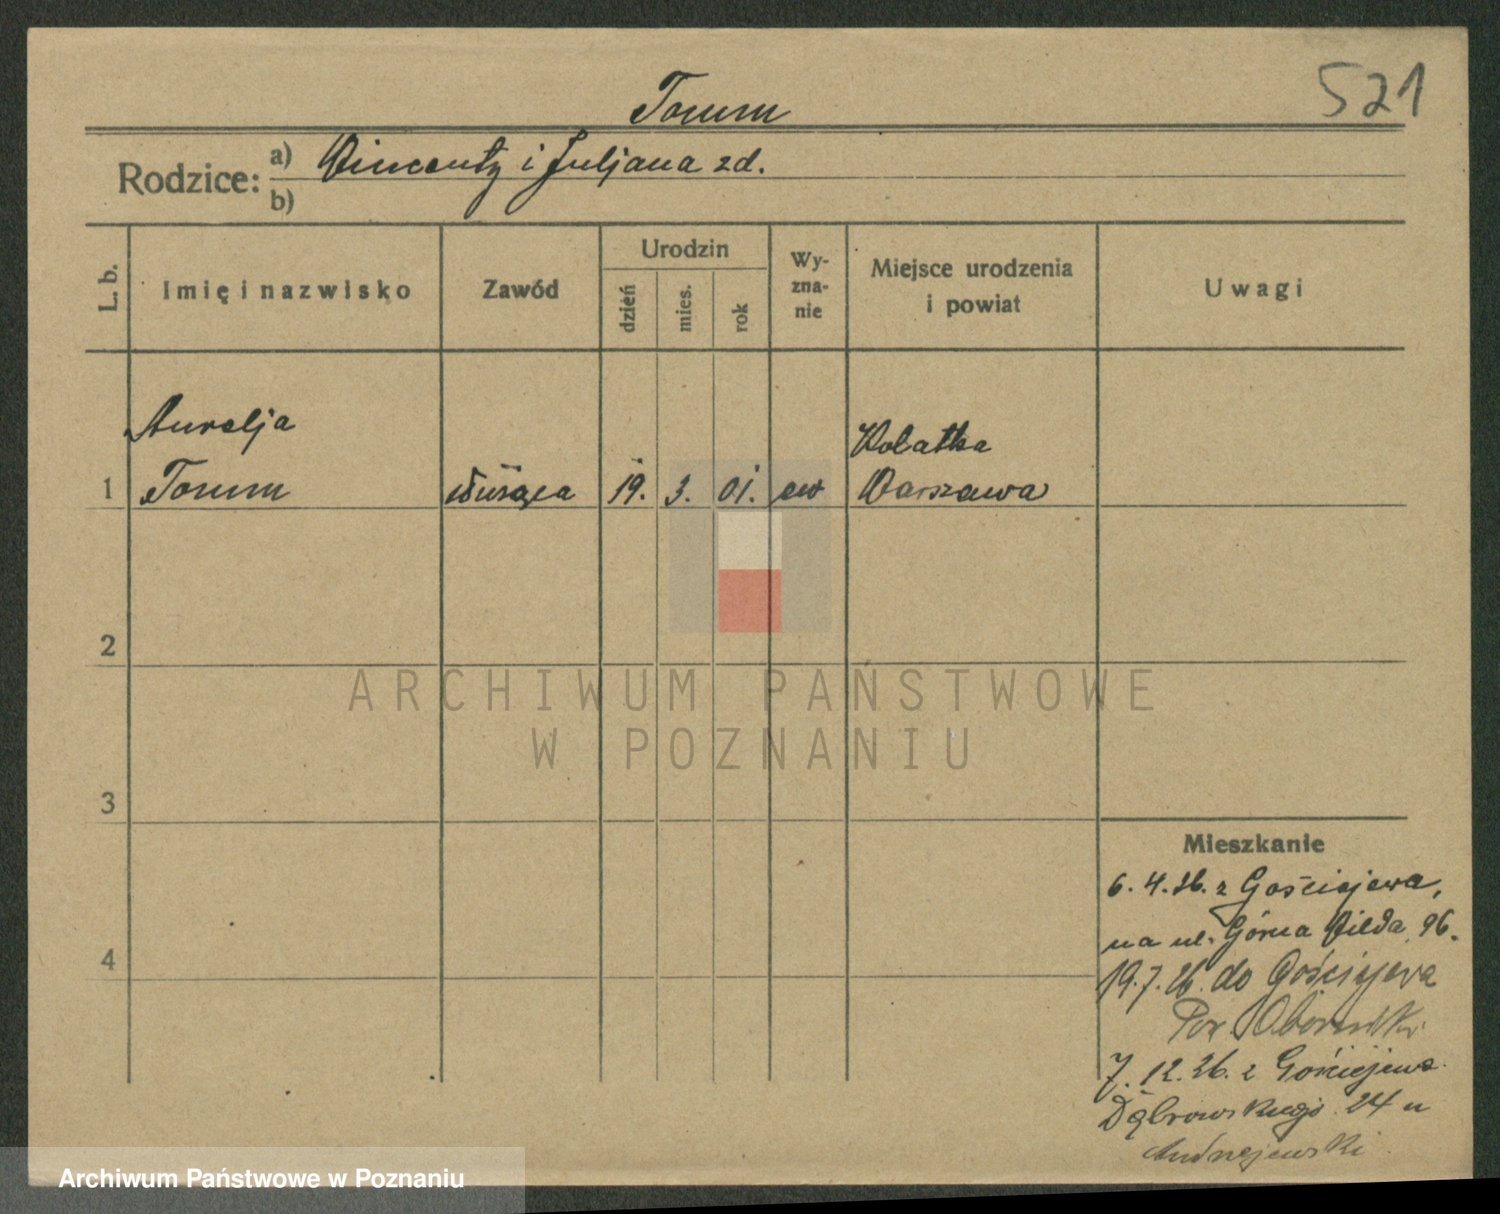 521
Torum
Rodzice: a) Vincenty i Juljana zd.
b)
L. b.
Imię i nazwisko
Zawód
Urodzin
dzień
mies.
rok
Wy-
zna-
nie
Miejsce urodzenia
i powiat
Uwagi
Aurelja
1 Torum służąca 19. 3. 01. ew
Kolatka
Warszawa
2
3
4
ARCHIWUM PAŃSTWOWE
W POZNANIU
Mieszkanie
6. 4. 26. z Gościejewa,
na ul. Górna Wilda 96.
19. 7. 26. do Gościejewa
Pow. Obornicki
7. 12. 26. z Gościejewa
Dąbrowskiego 24 u
Andrzejewski
Archiwum Państwowe w Poznaniu